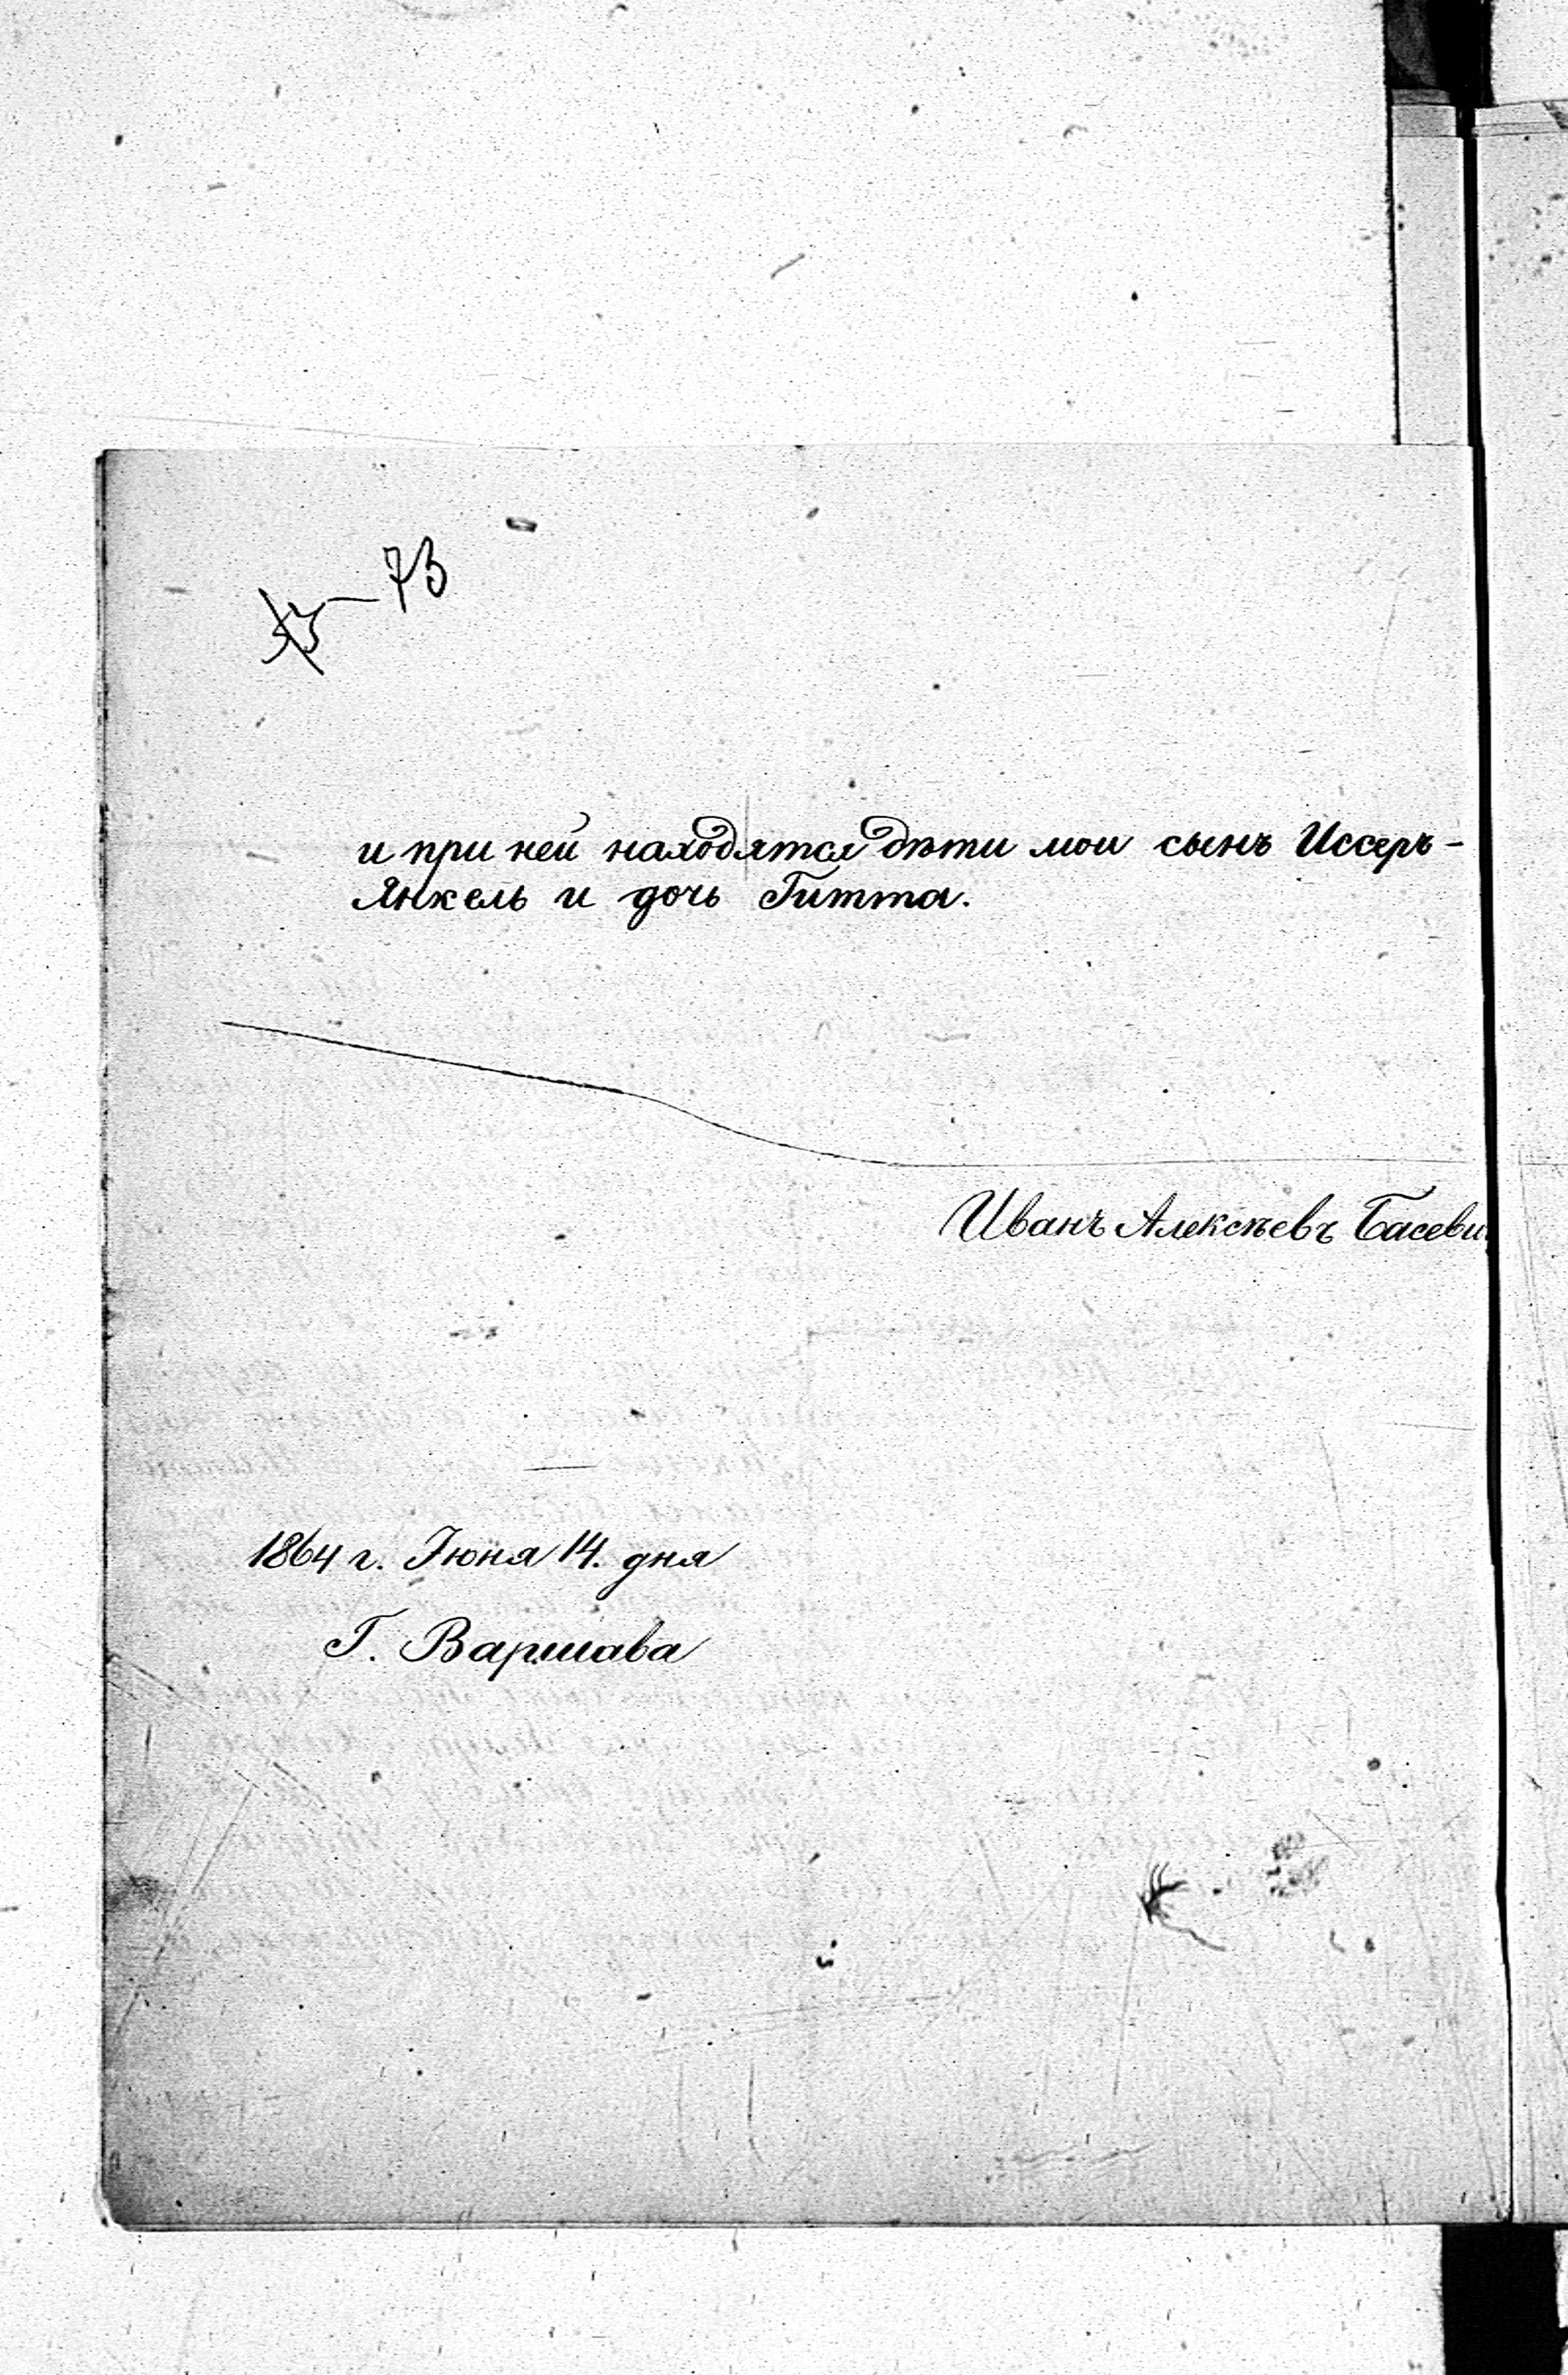 73
и при ней находятся дѣти мои сынъ Иссеръ-
Янкель и дочь Гитта.
Иванъ Алексѣевъ Басеви
1864 г. Іюня 14. дня
Г. Варшава